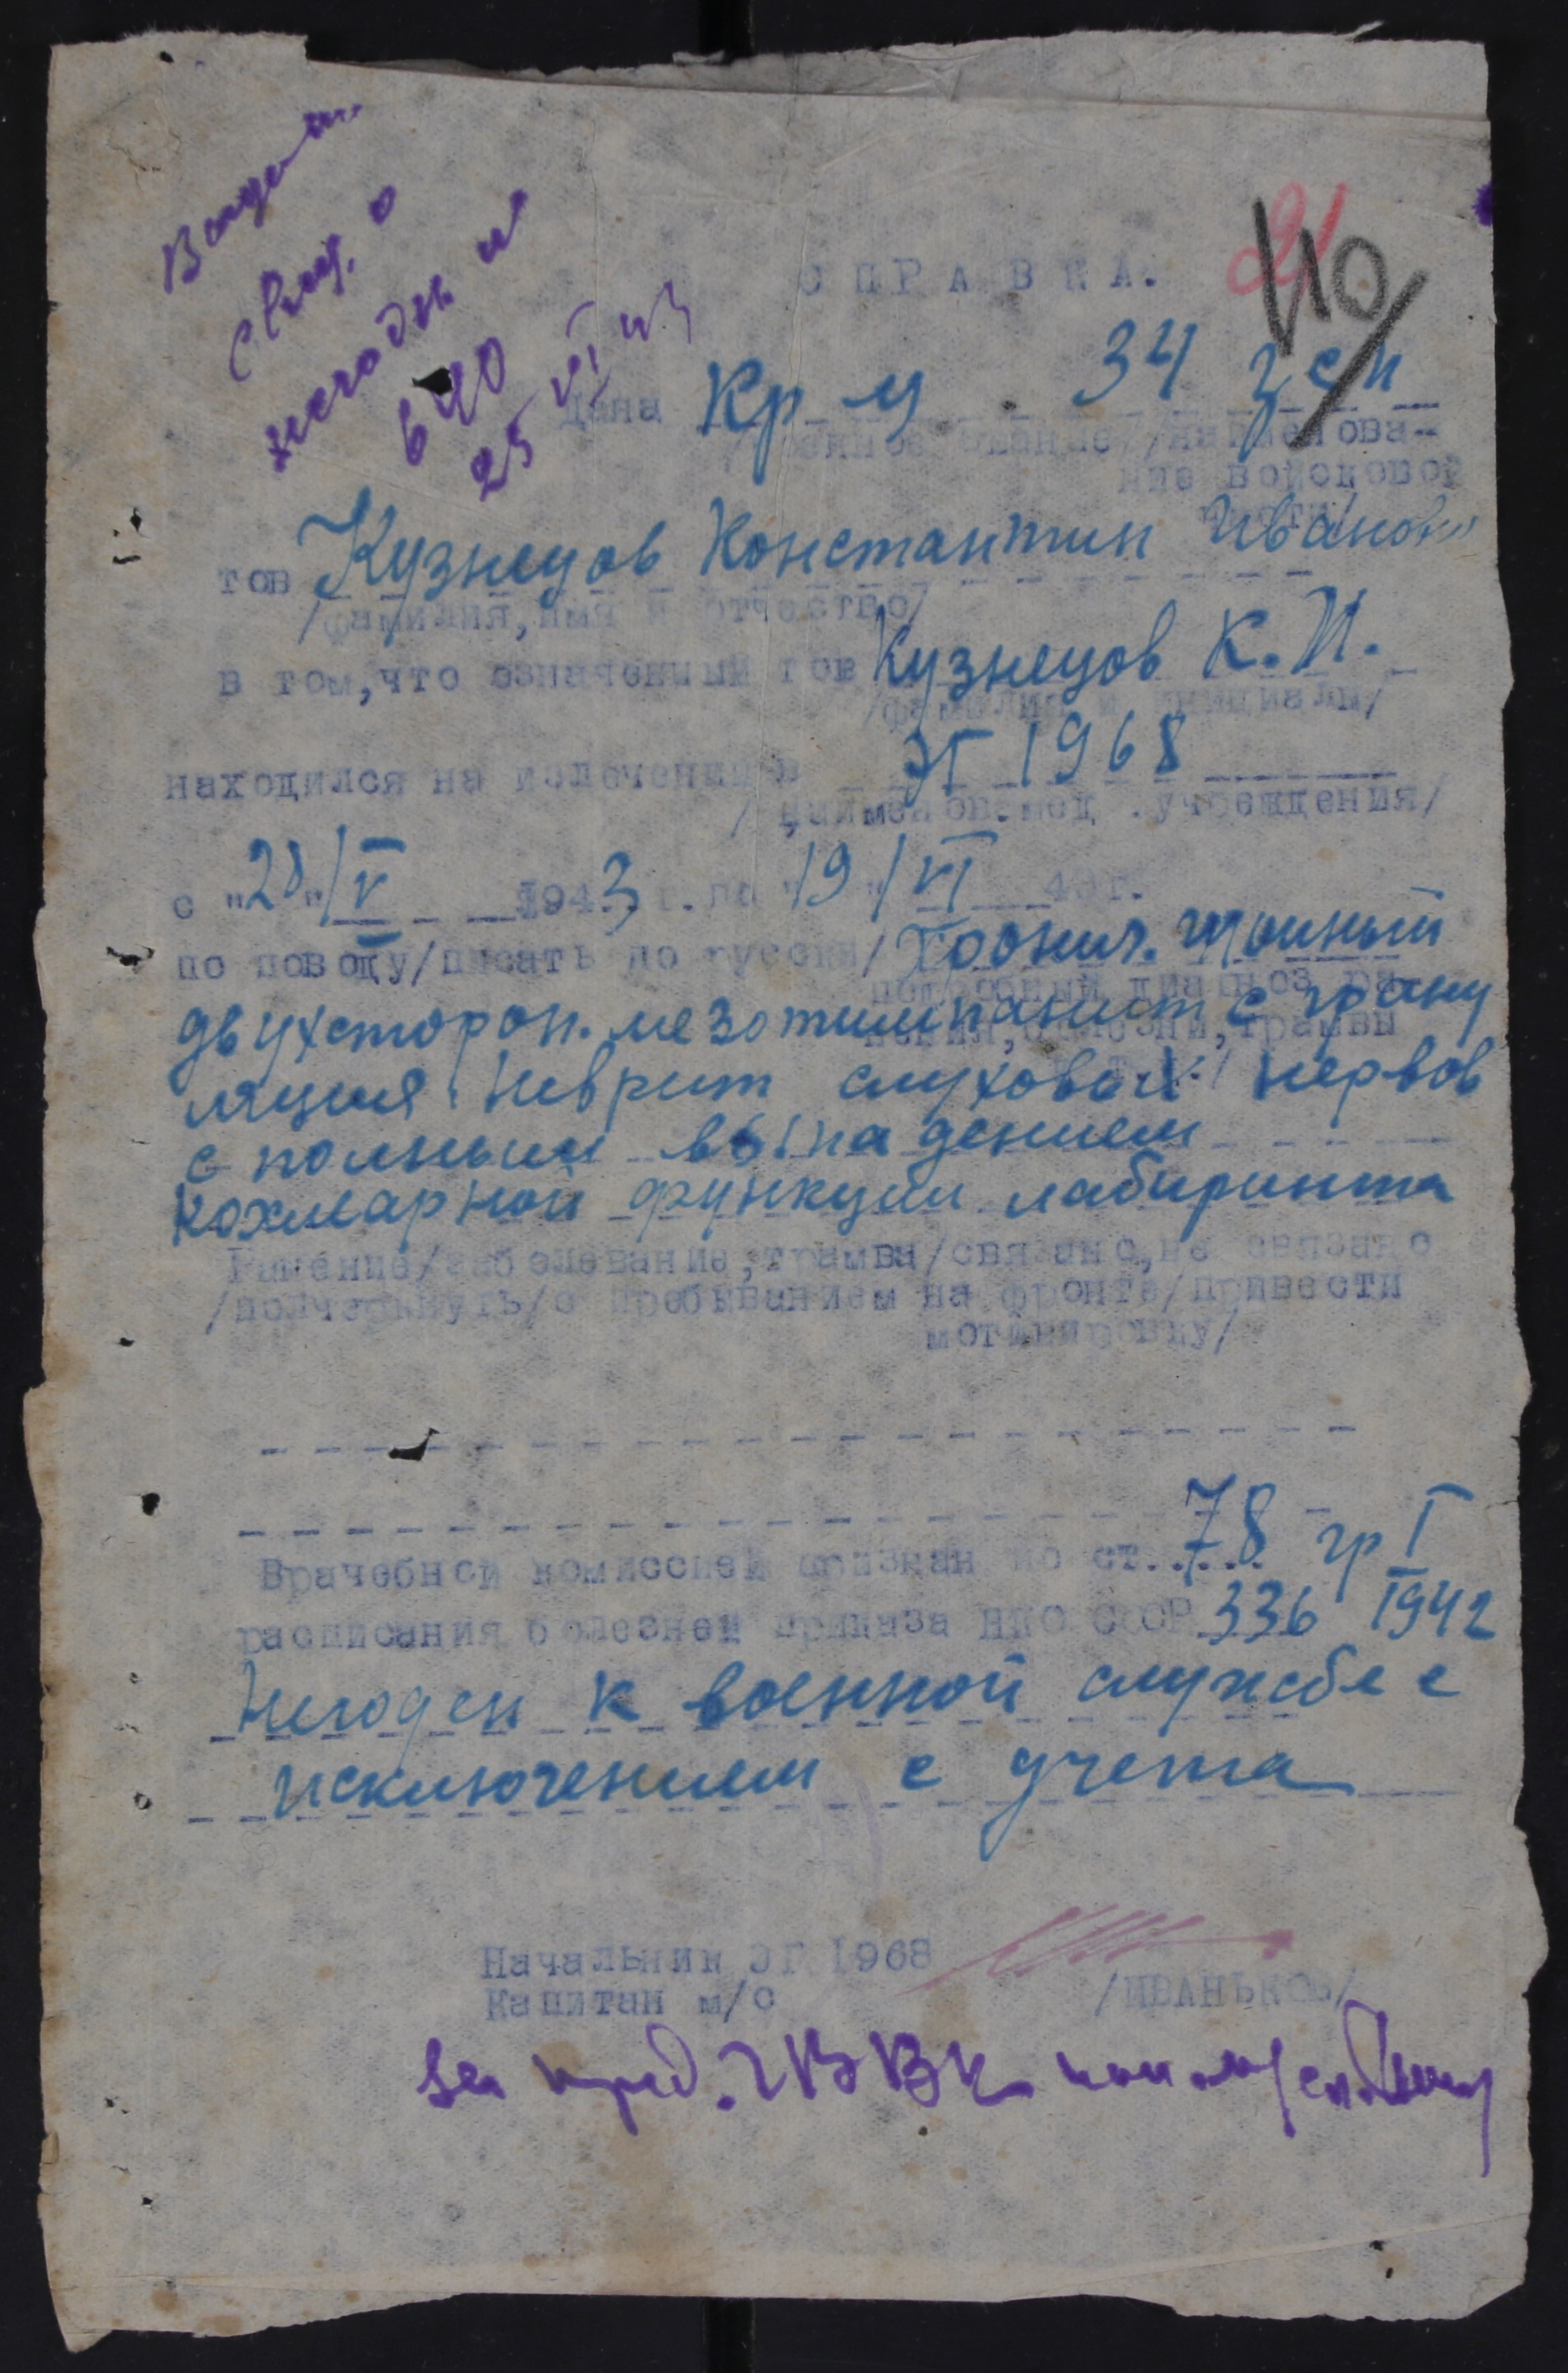 Выдать
свид. о
негодн. и
640
25 VI 43
21
110
СПРАВКА.
Дана Кр-ц 34 зсп
/военное звание/ /наименова-
ние войсковой
части/
тов Кузнецов Константин Иванович
/фамилия, имя и отчество/
в том, что означенный тов Кузнецов К.И.
/фамилия и инициалы/
находился на излечении в ЭГ 1968
/наименов. мед. учреждения/
с "28"/V 1943 г. по "19"/VI 43 г.
по поводу/писать по русски/ Хронич. гнойный
подробный диагноз ра-
двухсторон. мезотимпанит с грану
нения, болезни, трамвы
ляция. Неврит слуховых нервов
с полным выпадением
кохлеарной функции лабиринта
Ранение/заболевание, трамва/связано, не связано
/подчеркнуть/с пребыванием на фронте/привести
мотивировку/
Врачебной комиссией признан по ст..... 78 гр I
расписания болезней приказа НКО СССР 336 1942
Негоден к военной службе с
исключением с учета
Начальник ЭГ 1968
Капитан м/с /ИВАНЬКОВ/
За пред. ГВВК